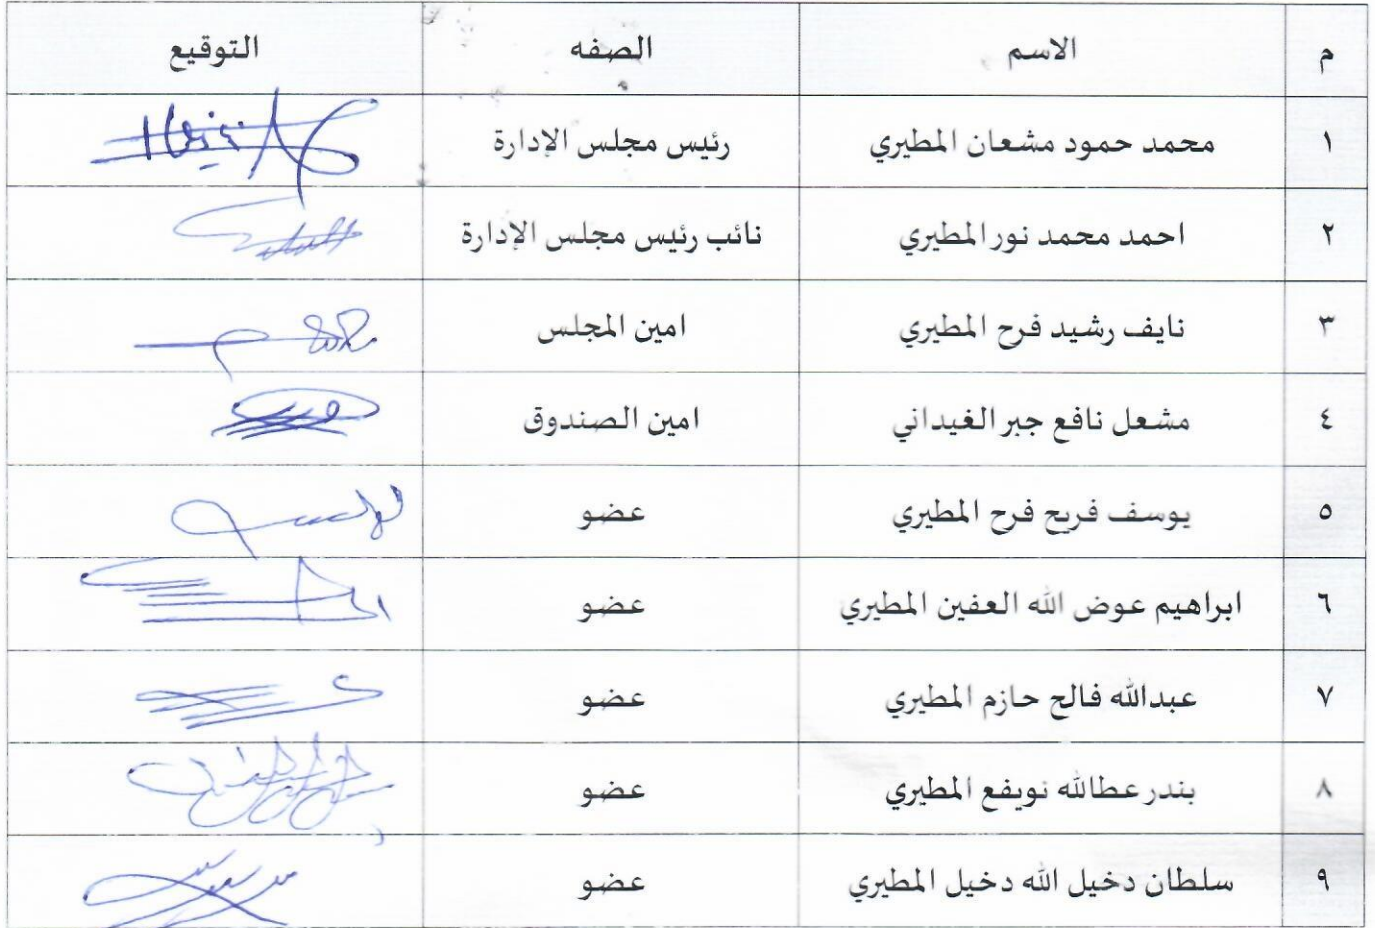 م الاسم الصفه التوقيع
١ محمد حمود مشعان المطيري رئيس مجلس الإدارة
٢ احمد محمد نور المطيري نائب رئيس مجلس الإدارة
٣ نايف رشيد فرح المطيري امين المجلس
٤ مشعل نافع جبر الغيداني امين الصندوق
٥ يوسف فريح فرح المطيري عضو
٦ ابراهيم عوض الله العفين المطيري عضو
٧ عبدالله فالح حازم المطيري عضو
٨ بندر عطالله نويفع المطيري عضو
٩ سلطان دخيل الله دخيل المطيري عضو